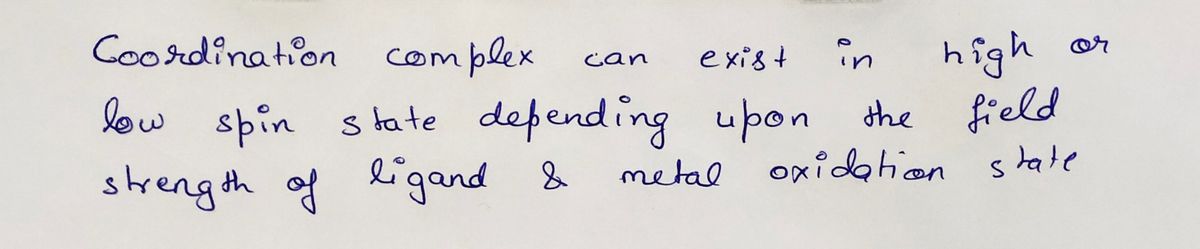 Coordination complex can exist in high or
low spin state depending upon the field
strength of ligand & metal oxidation state